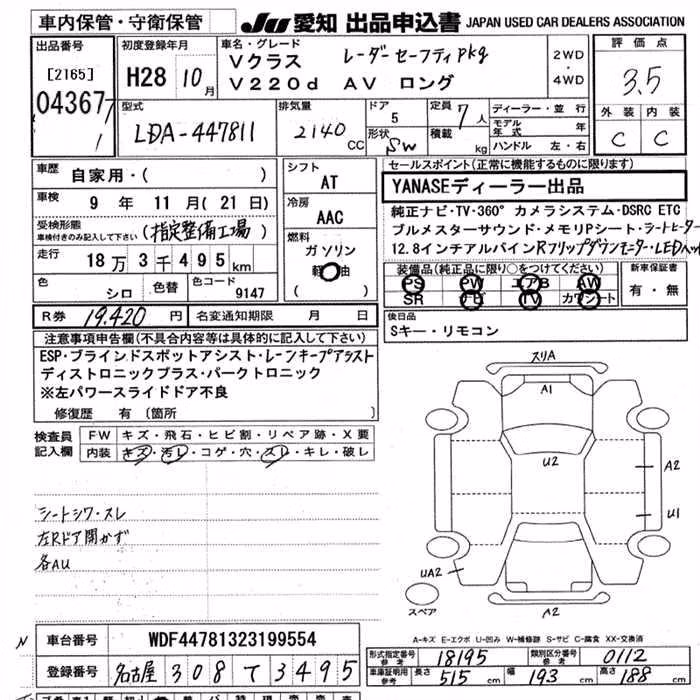 車内保管・守衛保管 JU 愛知 出品申込書 JAPAN USED CAR DEALERS ASSOCIATION
出品番号 [2165] 04367
初度登録年月 H28 10月
車名・グレード レーダーセーフティPkg
Vクラス
V220d AV ロング
2WD・4WD
評価点 3.5
外装 内装
C C
型式 LDA-447811
排気量 2140 CC
ドア 5
形状 SW
定員 7人
積載 kg
ディーラー・並行
モデル年式 年
ハンドル 左・右
車歴 自家用・( )
車検 9年 11月(21日)
受検形態 車検付きのみ記入して下さい (指定整備工場)
走行 18万3千495km
色 シロ 色替 色コード 9147
シフト AT
冷房 AAC
燃料 ガソリン 軽油 ( )
セールスポイント(正常に機能するものに限ります)
YANASEディーラー出品
純正ナビ・TV・360°カメラシステム・DSRC ETC
ブルメスターサウンド・メモリPシート・シートヒーター
12.8インチアルパインRフリップダウンモニター・LEDヘッ
装備品(純正品に限り○をつけてください)
PS PW エアB AW
SR ナビ TV カワシート
新車保証書 有・無
R券 19,420円 名変通知期限 月 日
後日品
Sキー・リモコン
注意事項申告欄(不具合内容等は具体的に記入して下さい)
ESP・ブラインドスポットアシスト・レーンキープアシスト
ディストロニックプラス・パークトロニック
※左パワースライドドア不良
修復歴 有〔箇所
検査員記入欄
FW キズ・飛石・ヒビ割・リペア跡・X要
内装 キズ・汚レ・コゲ・穴・スレ・キレ・破レ
シートシワ・スレ
左Rドア開かず
各AU
スリA
A1
U2
A2
U1
UA2
スペア
A2
A-キズ E-エクボ U-凹み W-補修跡 S-サビ C-腐食 XX-交換済
車台番号 WDF44781323199554
登録番号 名古屋 308 て 3495
形式指定番号 参考 18195 類別区分番号 参考 0112
車庫証明用 参考 長さ 515cm 幅 193cm 高さ 188cm